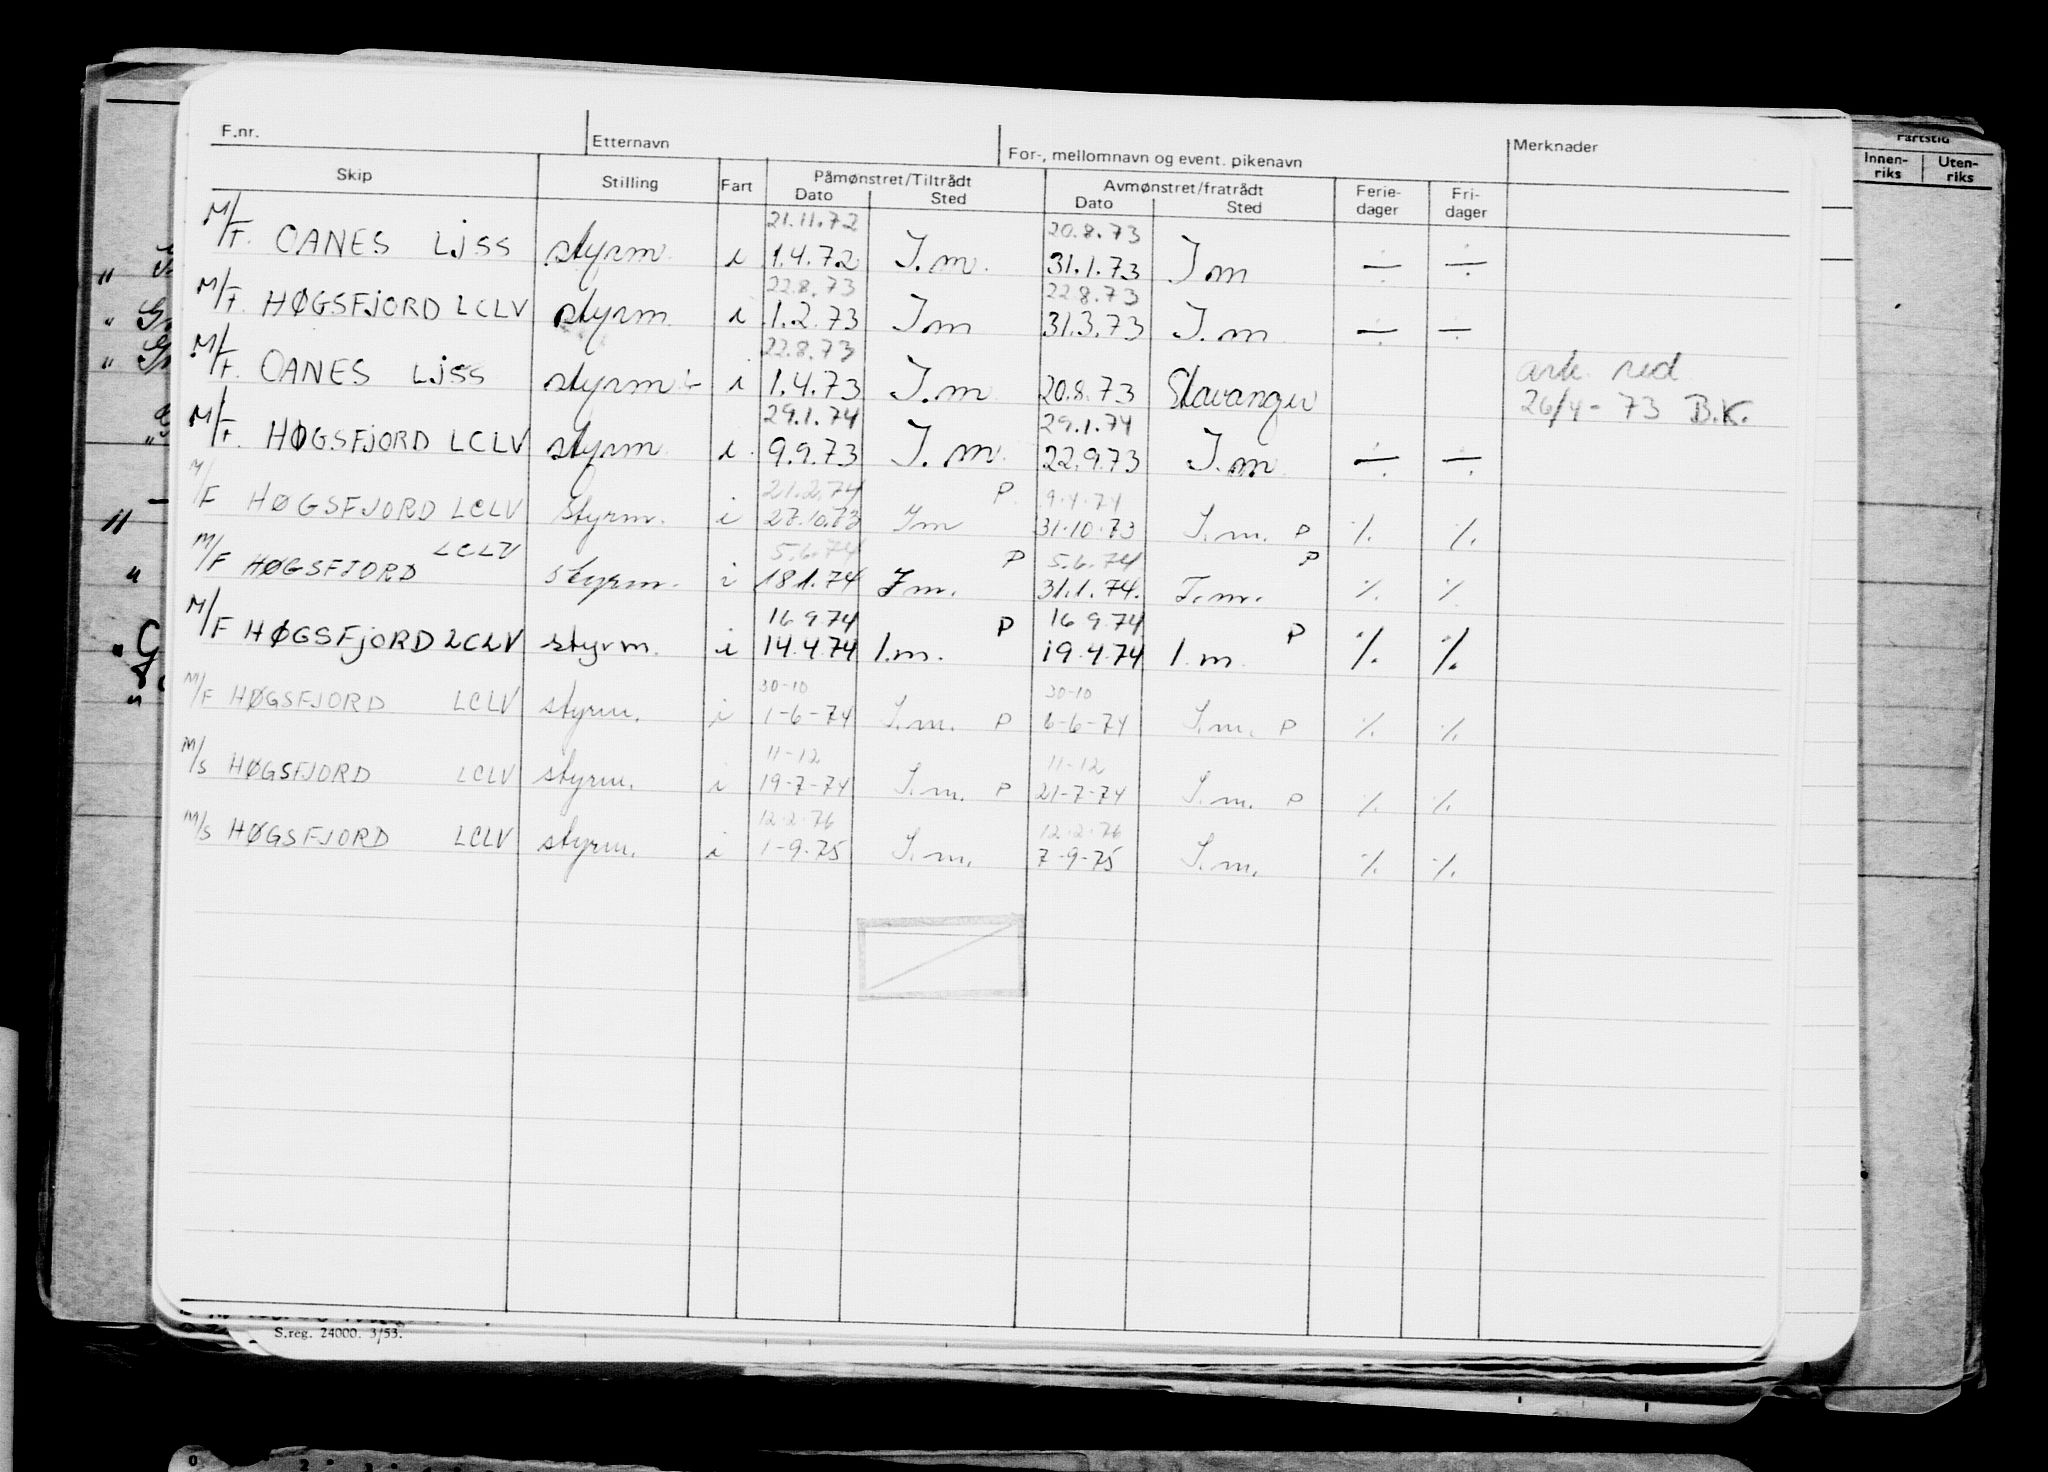 F.nr. Etternavn For-, mellomnavn og event. pikenavn Merknader
Skip Stilling Fart Påmønstret/Tiltrådt Avmønstret/fratrådt Ferie-dager Fri-dager
Dato Sted Dato Sted
Fartstid
Innen-riks Uten-riks
21.11.72 20.8.73
M/F. OANES LJSS styrm. i 1.4.72 I.m. 31.1.73 I m ÷ ÷
22.8.73 22.8.73
M/F. HØGSFJORD LCLV styrm i 1.2.73 I m 31.3.73 I.m ÷ ÷
22.8.73
M/F. OANES LJSS styrm. i 1.4.73 I.m 20.8.73 Stavanger ark. red
26/4-73 B.K.
29.1.74 29.1.74
M/F. HØGSFJORD LCLV styrm i. 9.9.73 I.m. 22.9.73 I.m ÷ ÷
21.2.74 P 9.4.74
M/F HØGSFJORD LCLV Styrm. i 27.10.73 I m 31.10.73 I.m. P % %
LCLV 5.6.74 P 5.6.74 P
M/F HØGSFJORD styrm. i 18.1.74 I m. 31.1.74. I.m. % %
16 9 74 P 16 9.74 P
M/F HØGSFJORD LCLV styrm. i 14.4.74 I.m. 19.4.74 I.m % %
30-10 30-10
M/F HØGSFJORD LCLV styrm. i 1-6-74 I.m. P 6-6-74 I.m. P % %
11-12 11-12
M/S HØGSFJORD LCLV styrm. i 19-7-74 I.m. P 21-7-74 I.m. P % %
12.2.76 12.2.76
M/S HØGSFJORD LCLV styrm. i 1-9.75 I.m. 7-9-75 I.m. % %
S.reg. 24000. 3/53.